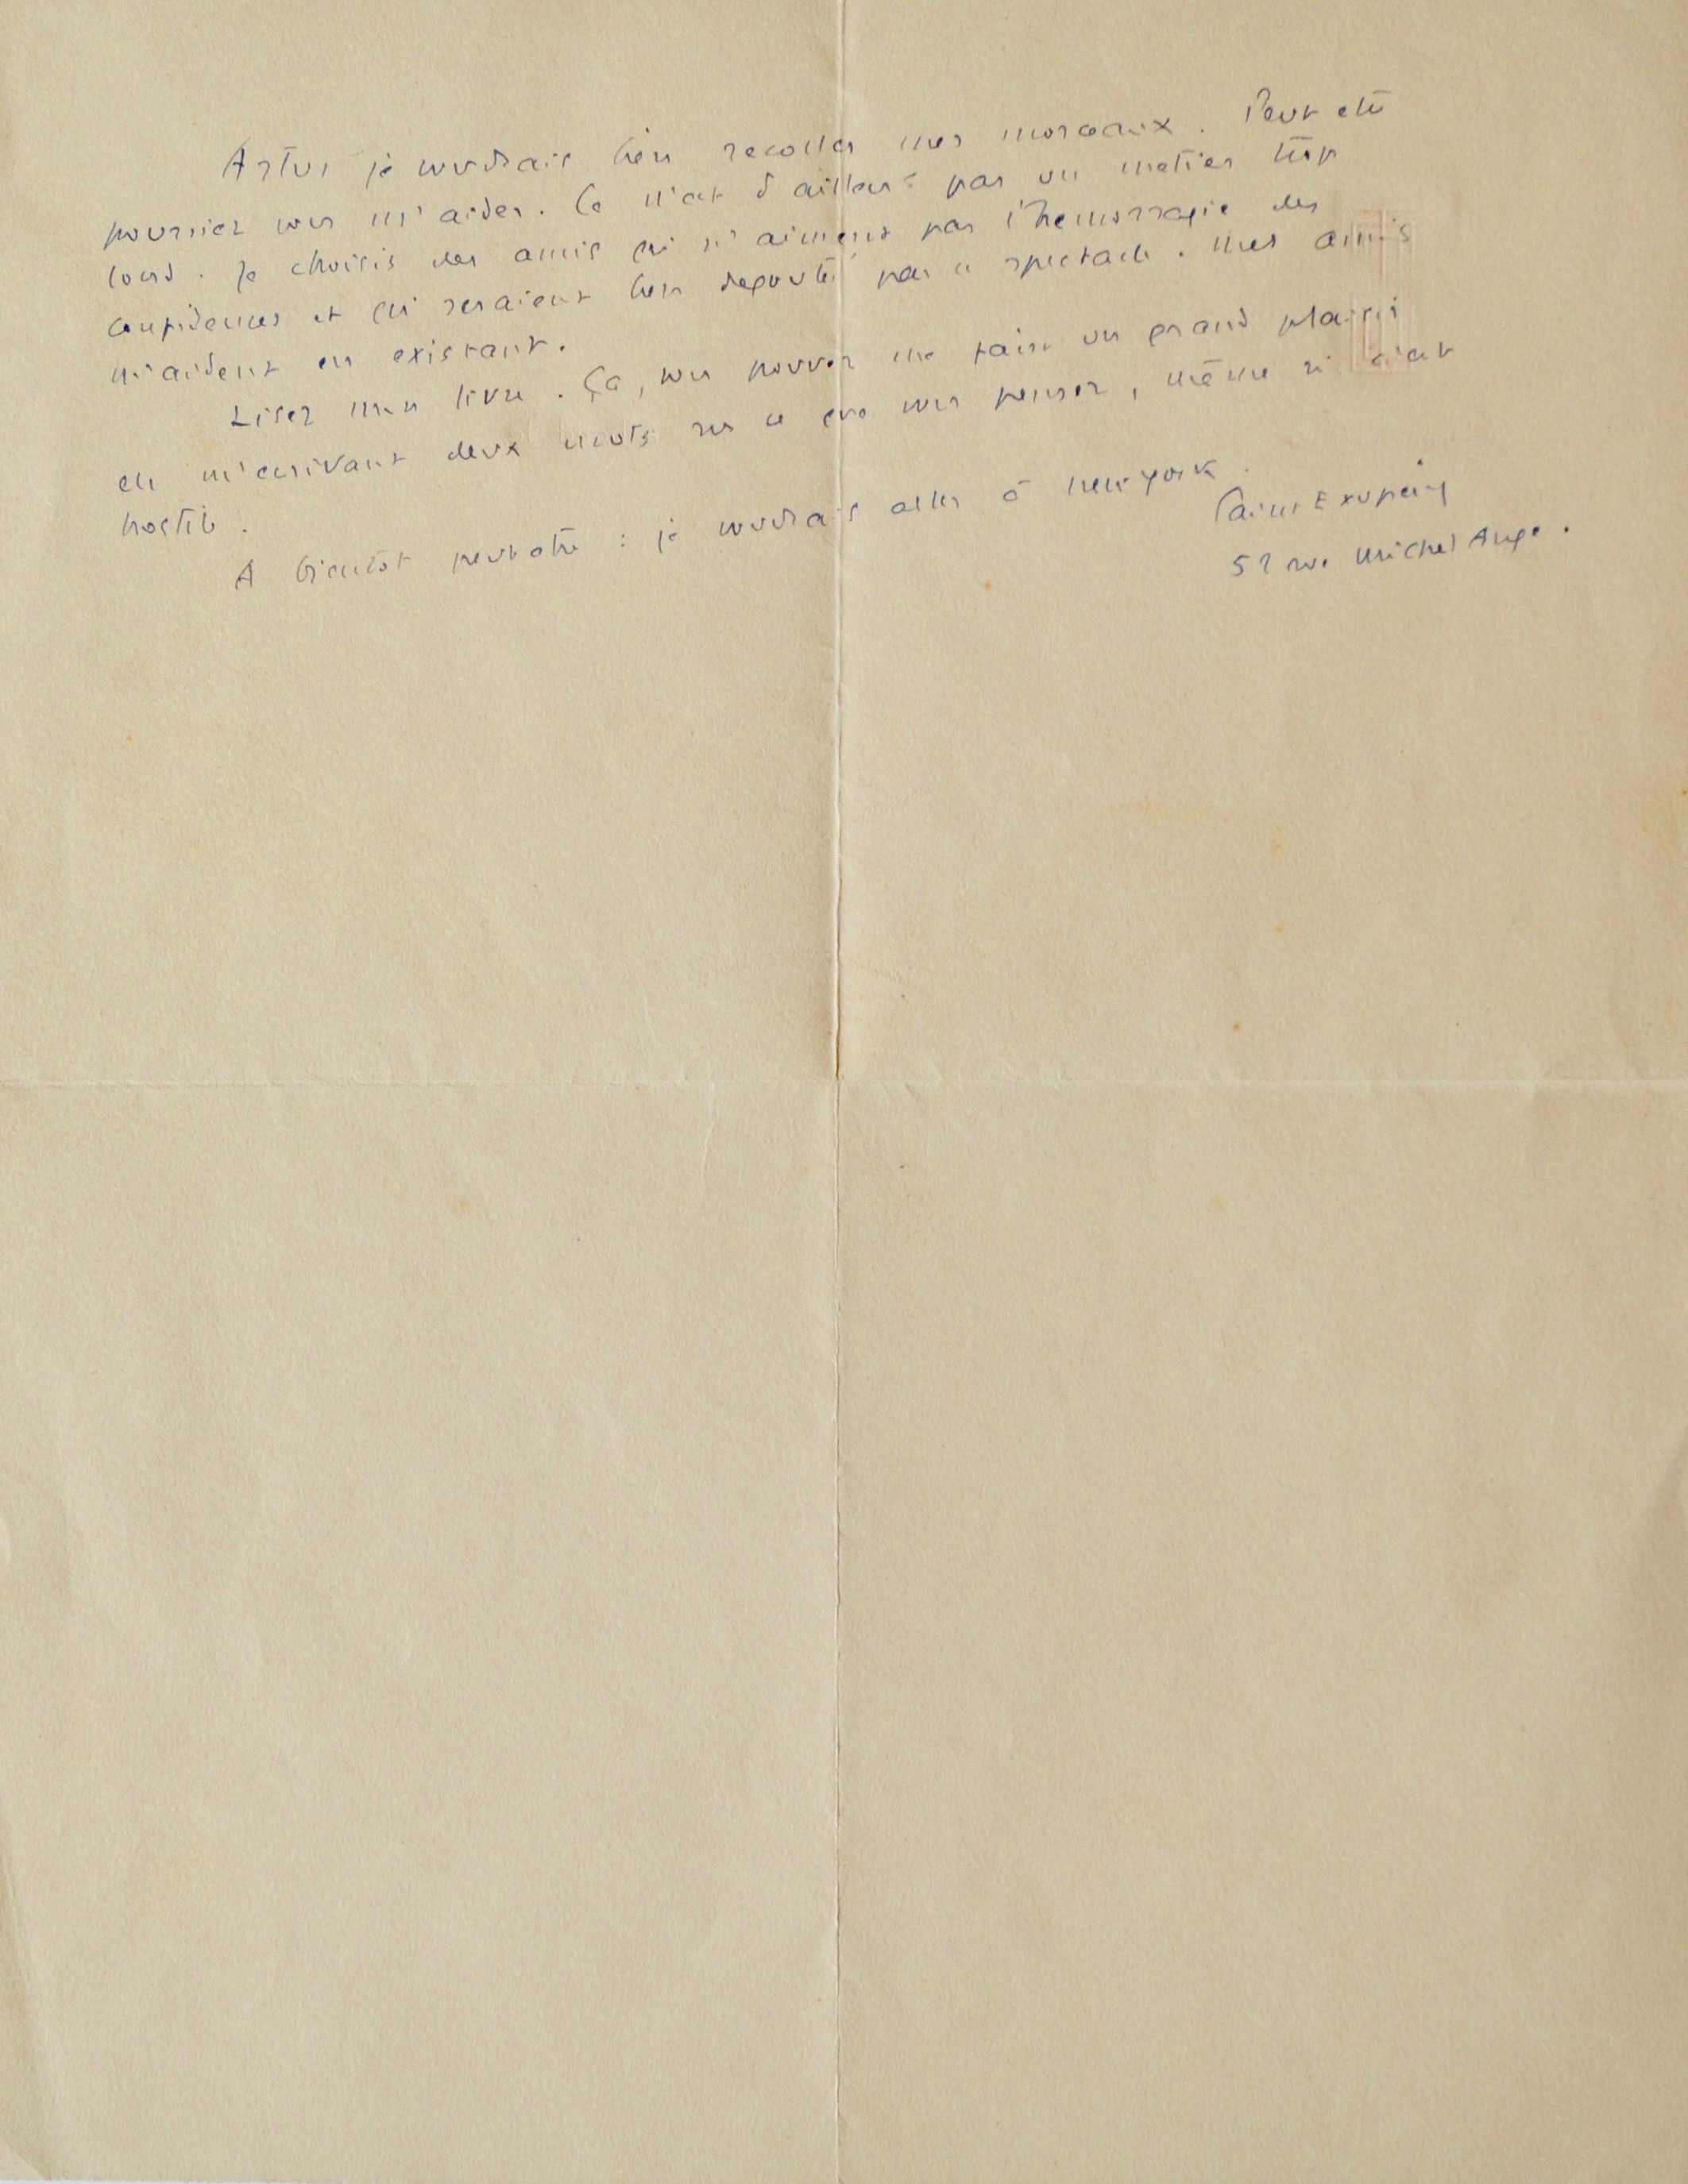 Artus je voudrais bien recoller mes morceaux. Peut etre
pourriez vous m'aider. Ce n'est d'ailleurs pas un metier trop
lourd. Je choisis des amis qui n'aiment pas l'hemorragie des
confidences et qui seraient bien degoutés par ce spectacle. Mes amis
m'aident en existant.
Lisez mon livre. Ça, vous pouvez me faire un grand plaisir
en m'ecrivant deux mots sur ce que vous pensez, même si c'est
hostile.
A bientôt peut etre : je voudrais aller à New york.
Saint Exupéry
52 rue Michel Ange.